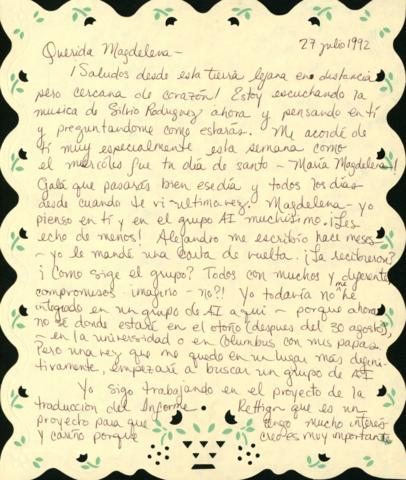 27 julio 1992
Querida Magdelena -
¡Saludos desde esta tierra lejana en distancia
pero cercana de corazón! Estoy escuchando la
musica de Silvio Rodriguez ahora y pensando en ti
y preguntandome como estarás. Me acordé de
ti muy especialmente esta semana como
el miercoles fue tu día de santo - María Magdalena!
Ojalá que pasarás bien ese día y todos los días
desde cuando te vi ultima vez. Magdelena - yo
pienso en ti y en el grupo AI muchísimo. ¡Les
echo de menos! Alejandro me escribío hace meses
- yo le mandé una carta de vuelta. ¿La recibieron?
¿Como sige el grupo? Todos con muchos y diferentes
compromisos imagino - no?! Yo todavía no me he
integrado en un grupo de AI aqui - porque ahora
no sé donde estaré en el otoño (despues del 30 agosto),
- en la universidad o en Columbus con mis papas.
Pero una vez que me quedo en un lugar más defini-
tivamente, empezaré a buscar un grupo de AI
Yo sigo trabajando en el proyecto de la
traduccion del Informe Rettign que es un
proyecto para que tengo mucho interes
y cariño porque creo es muy importante